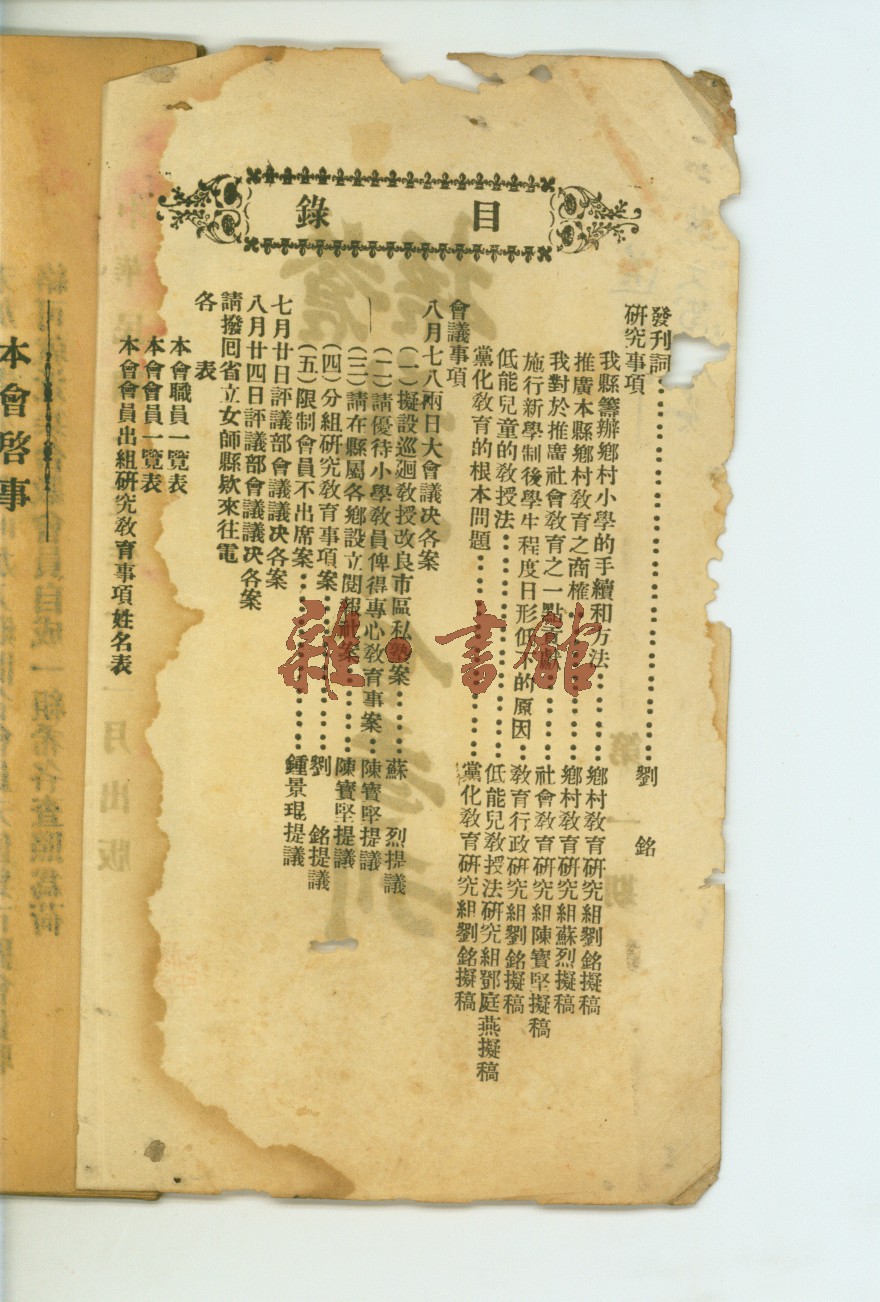 目錄
發刊詞……………………劉銘
研究事項
我縣籌辦鄉村小學的手續和方法………鄉村教育研究組劉銘擬稿
推廣本縣鄉村教育之商榷………鄉村教育研究組蘇烈擬稿
我對於推廣社會教育之一點貢獻………社會教育研究組陳寶堅擬稿
施行新學制後學生程度日形低下的原因…教育行政研究組劉銘擬稿
低能兒童的教授法………………低能兒教授法研究組鄧庭燕擬稿
黨化教育的根本問題………………黨化教育研究組劉銘擬稿
會議事項
八月七八兩日大會議决各案
(一)擬設巡廻教授改良市區私塾案……蘇烈提議
(二)請優待小學教員俾得專心教育事案…陳寶堅提議
(三)請在縣屬各鄉設立閱報社案……陳寶堅提議
(四)分組研究教育事項案………劉銘提議
(五)限制會員不出席案………鍾景琨提議
七月廿日評議部會議議决各案
八月廿四日評議部會議議决各案
請撥囘省立女師縣欵來往電
各表
本會職員一覽表
本會會員一覽表
本會會員出組研究教育事項姓名表
本會啓事
雜·書館